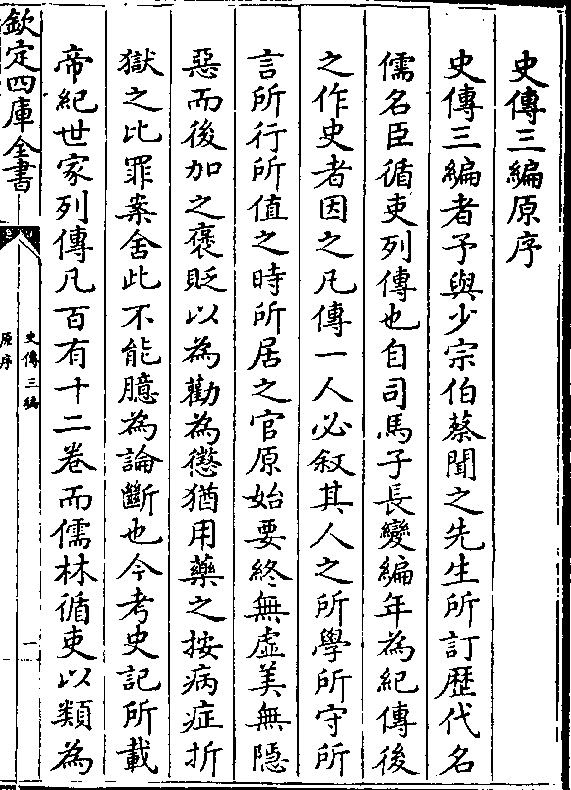 史傳三編原序
史傳三編者予與少宗伯蔡聞之先生所訂歴代名
儒名臣循吏列傳也自司馬子長變編年為紀傳後
之作史者因之凡傳一人必叙其人之所學所守所
言所行所值之時所居之官原始要終無虛美無隱
惡而後加之褒貶以為勸為懲猶用藥之按病症折
獄之比罪案舍此不能臆為論斷也今考史記所載
帝紀世家列傳凡百有十二卷而儒林循吏以類為
欽定四庫全書
史傳三編
原序
一